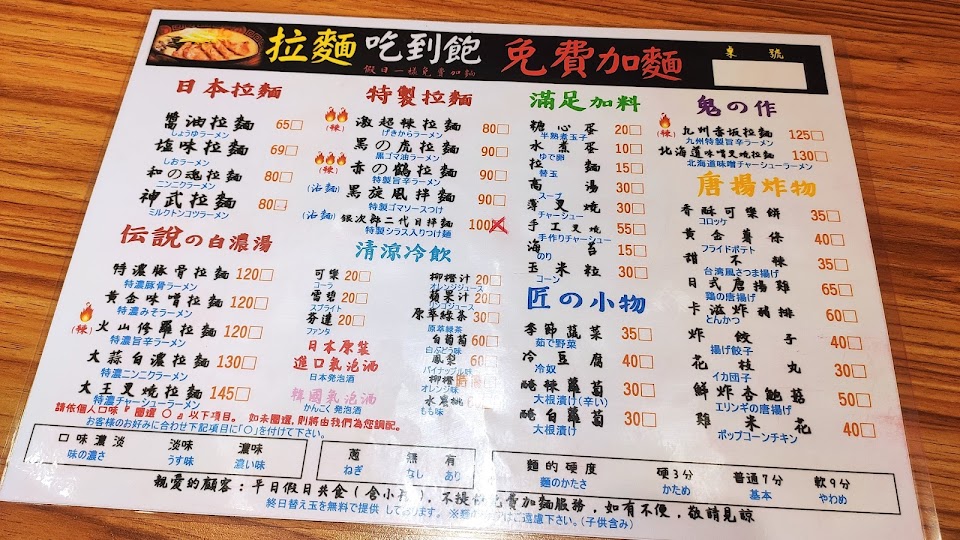 拉麵吃到飽 免費加麵
假日一樣免費加麵
桌 號
日本拉麵
醬油拉麵 65□
しょうゆラーメン
塩味拉麵 69□
しおラーメン
和の魂拉麵 80□
ニンニクラーメン
神武拉麵 80□
ミルクトンコツラーメン
伝説の白濃湯
特濃豚骨拉麵 120□
特濃豚骨ラーメン
黃金味噌拉麵 120□
特濃みそラーメン
(辣) 火山修羅拉麵 120□
特濃旨辛ラーメン
大蒜白濃拉麵 130□
特濃ニンニクラーメン
大王叉燒拉麵 145□
特濃チャーシューラーメン
特製拉麵
(辣) 激超辣拉麵 80□
げきからラーメン
黑の虎拉麵 90□
黒ゴマ油ラーメン
(辣) 赤の鶴拉麵 90□
特製旨辛ラーメン
(沾麵) 黑旋風拌麵 90□
特製ゴマソースつけ
(沾麵) 銀次郎二代目拌麵 100
特製シラス入りつけ麺
清涼冷飲
可樂 20□
コーラ
雪碧 20□
スプライト
芬達 20□
ファンタ
日本原裝
進口氣泡酒
日本発泡酒
韓國氣泡酒
かんこく発泡酒
柳橙汁 20□
オレンジジュース
蘋果汁 20□
リンゴジュース
原萃綠茶 30□
原萃緑茶
白葡萄 60□
白ぶどう味
鳳梨 60□
パイナップル味
柳橙
オレンジ味
水蜜桃
もも味
滿足加料
糖心蛋 20□
半熟煮玉子
水煮蛋 10□
ゆで卵
拉麵 15□
替玉
高湯 30□
スープ
薄叉燒 30□
チャーシュー
手工叉燒 55□
手作りチャーシュー
海苔 15□
のり
玉米粒 30□
コーン
匠の小物
季節蔬菜 35□
茹で野菜
冷豆腐 40□
冷奴
醃辣蘿蔔 30□
大根漬け(辛い)
醃白蘿蔔 30□
大根漬け
鬼の作
(辣) 九州香坂拉麵 125□
九州特製旨辛ラーメン
北海道味噌叉燒拉麵 130□
北海道味噌チャーシューラーメン
唐揚炸物
香酥可樂餅 35□
コロッケ
黃金薯條 40□
フライドポテト
甜不辣 35□
台湾風さつま揚げ
日式唐揚雞 65□
鶏の唐揚げ
卡滋炸豬排 60□
とんかつ
炸餃子 40□
揚げ餃子
花枝丸 30□
イカ団子
鮮炸杏鮑菇 50□
エリンギの唐揚げ
雞米花 40□
ポップコーンチキン
請依個人口味，圈選 ○ a 以下項目。 如未圈選,則將由我們為您調配。
お客様のお好みに合わせ下記項目に「○」を付けて下さい。
口味濃淡 淡味 濃味
味の濃さ うす味 濃い味
蔥 無 有
ねぎ なし あり
麵的硬度 硬3分 普通7分 軟9分
麺のかたさ かため 基本 やわめ
親愛的顧客：平日假日共食(含小孩)，不提供免費加麵服務，如有不便，敬請見諒
終日替え玉を無料で提供 しております。 ※麺 はご遠慮下さい。(子供含み)